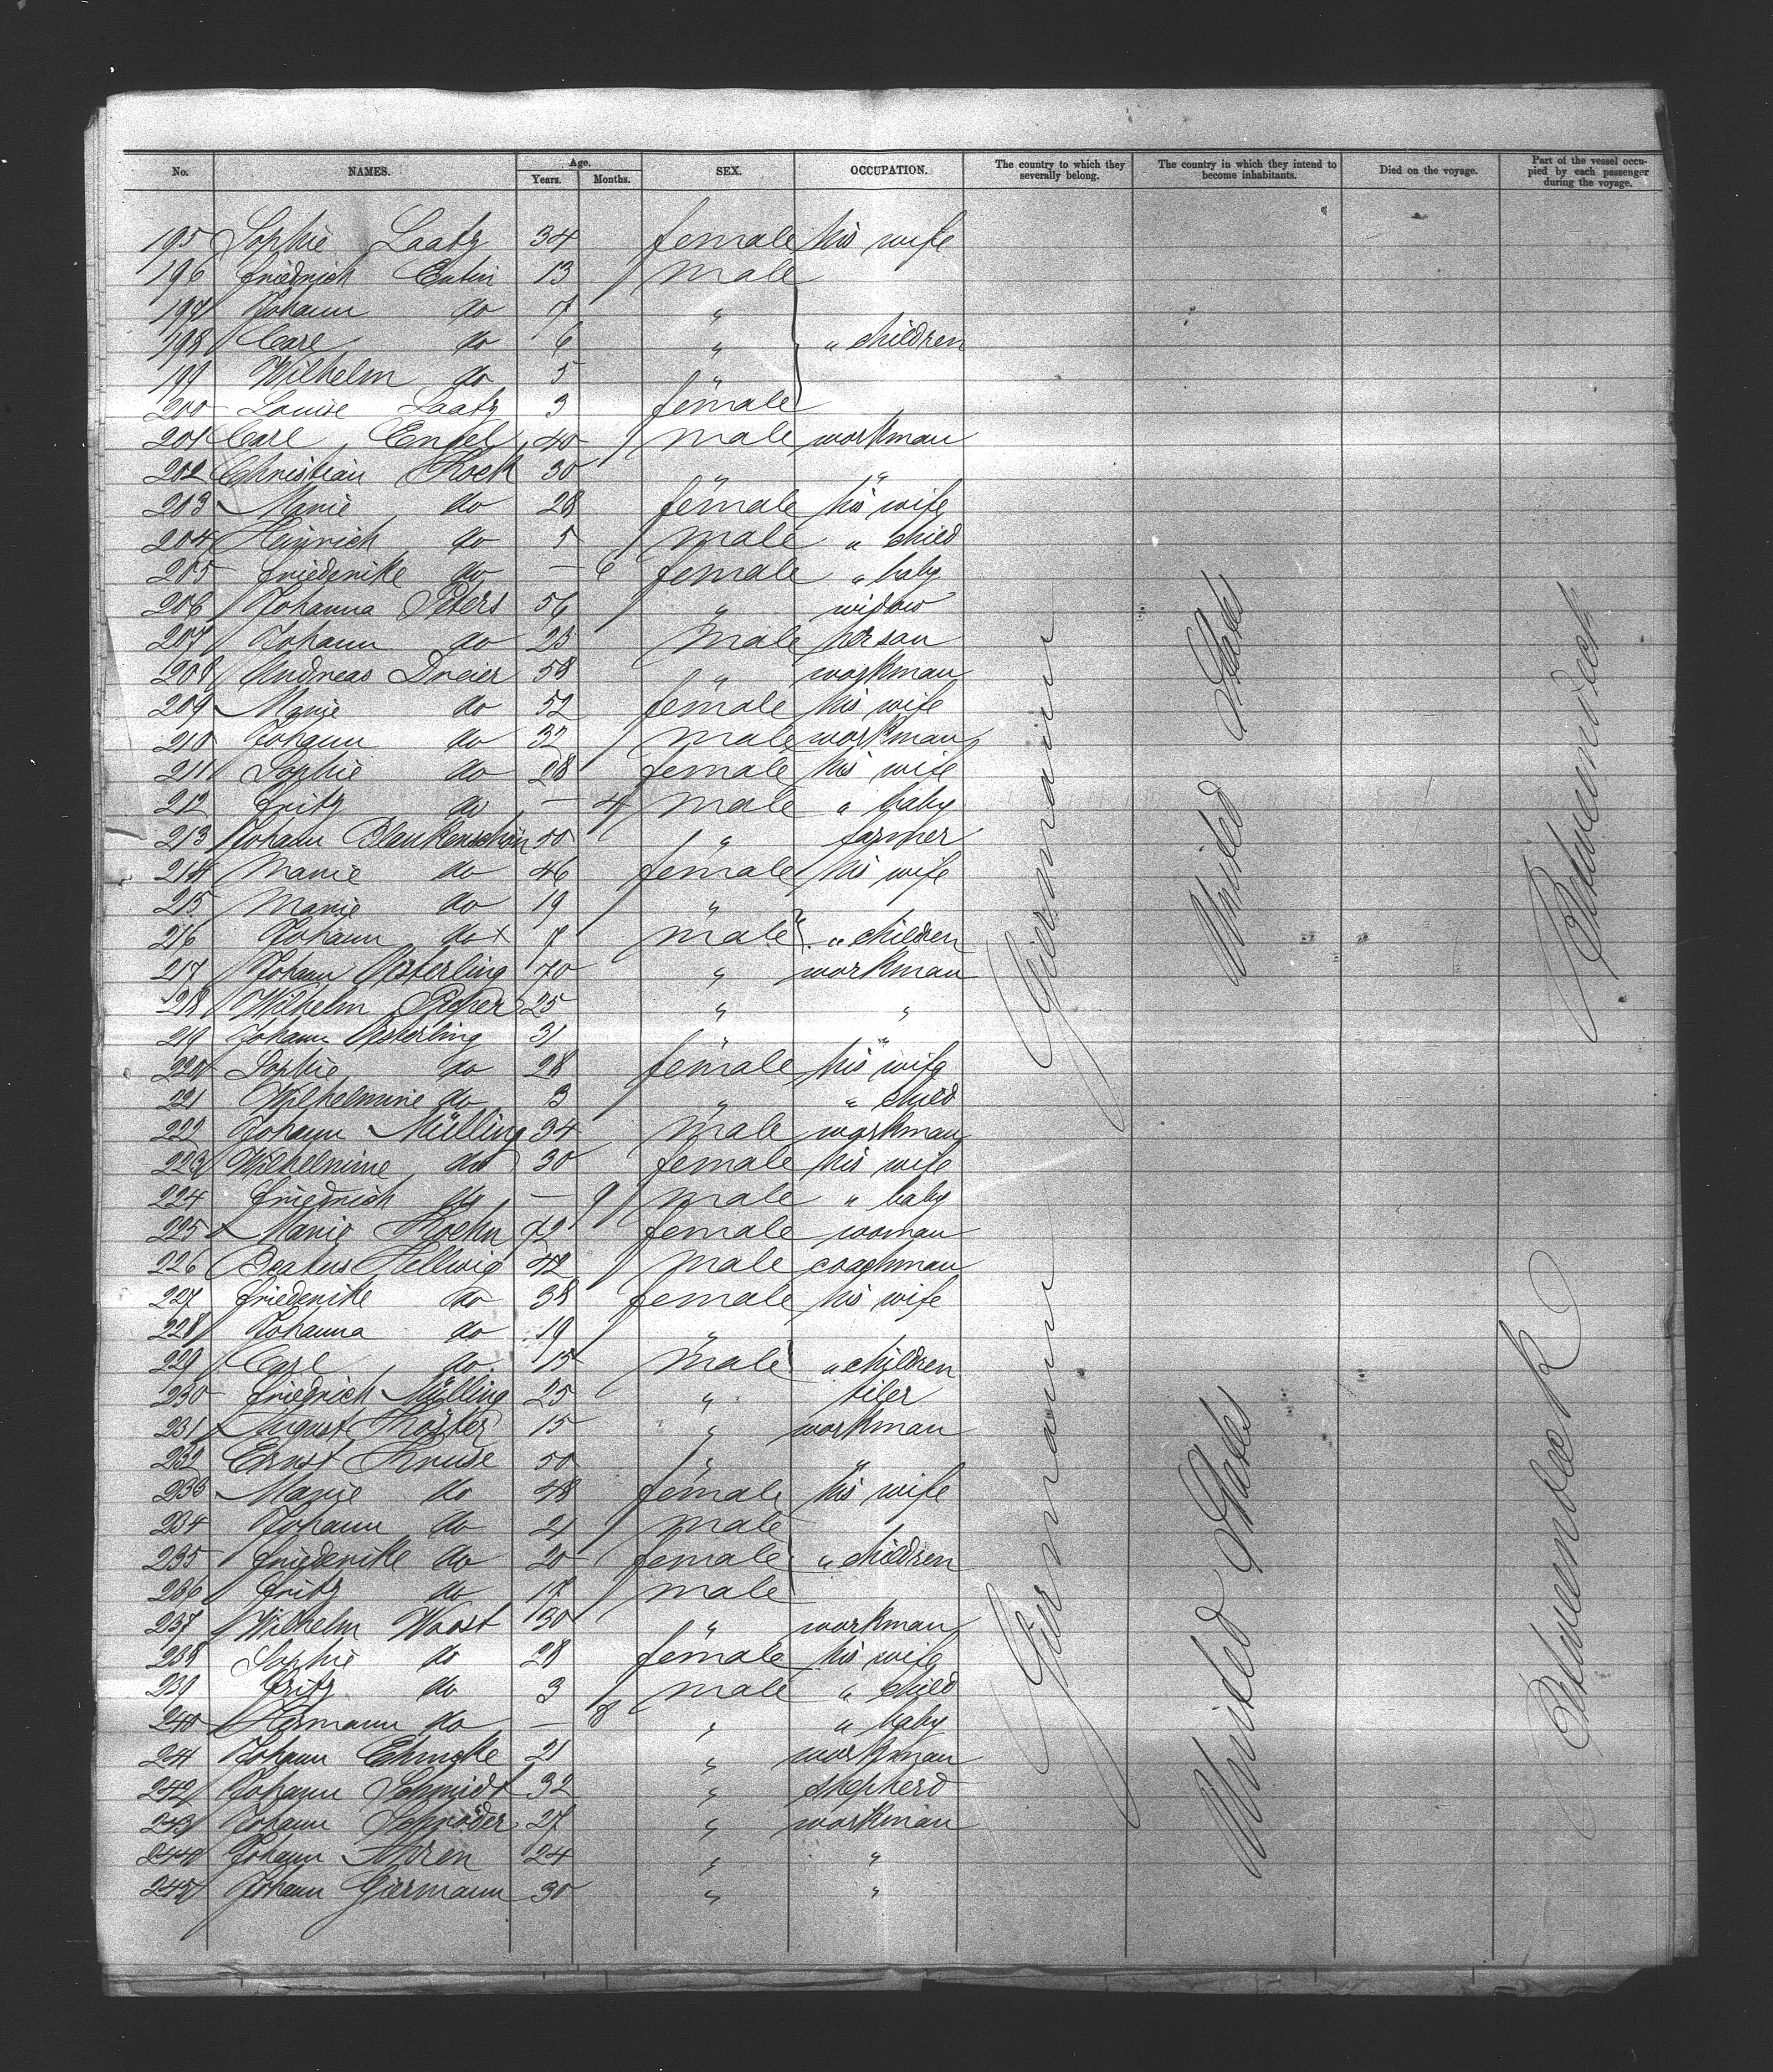 No. NAMES. Age. Years. Months. SEX. OCCUPATION. The country to which they severally belong. The country in which they intend to become inhabitants. Died on the voyage. Part of the vessel occupied by each passenger during the voyage.
195 Sophie Laatz 34 female his wife
196 Friedrich Eutin 13 male
197 Johann do 7 "
198 Carl do 6 " " children
199 Wilhelm do 5 "
200 Louise Laatz 3 female
201 Carl Engel 40 male workman
202 Christian Koch 30 " "
203 Marie do 28 female his wife
204 Heinrich do 5 male " child
205 Friederike do — 6 female " baby
206 Johanna Peters 56 " widow
207 Johann do 25 male her son
208 Andreas Dreier 58 " workman
209 Marie do 52 female his wife
210 Johann do 32 male workman
211 Sophie do 28 female his wife
212 Fritz do — 4 male " baby
213 Johann Blankenschön 50 " farmer
214 Marie do 46 female his wife
215 Marie do 19 "
216 Johann do x 7 male " children
217 Johann Westerling 70 " workman
218 Wilhelm Pieper 25 " "
219 Johann Westerling 31 " "
220 Sophie do 28 female his wife
221 Wilhelmine do 3 " " child
222 Johann Mülling 34 male workman
223 Wilhelmine do 30 female his wife
224 Friedrich do — 9 male " baby
225 Marie Koehn 72 female woman
226 Hellwig 42 male coachman
227 Friederike do 38 female his wife
228 Johanna do 19 "
229 Carl do 15 male " children
230 Friedrich Mülling 25 " tiler
231 August Köster 15 " workman
232 Ernst Kruse 50 " "
233 Marie do 48 female his wife
234 Johann do 21 male
235 Friederike do 20 female " children
236 Fritz do 17 male
237 Wilhelm Woost 30 " workman
238 Sophie do 28 female his wife
239 Fritz do 3 male " child
240 Hermann do — 8 " " baby
241 Johann Ehmcke 21 " workman
242 Johann Schmidt 32 " shepherd
243 Johann Schröder 27 " workman
244 Johann Ahren 24 " "
245 Johann Giermann 30 " "
Germany
United States
Betweendeck
Germany
United States
Betweendeck